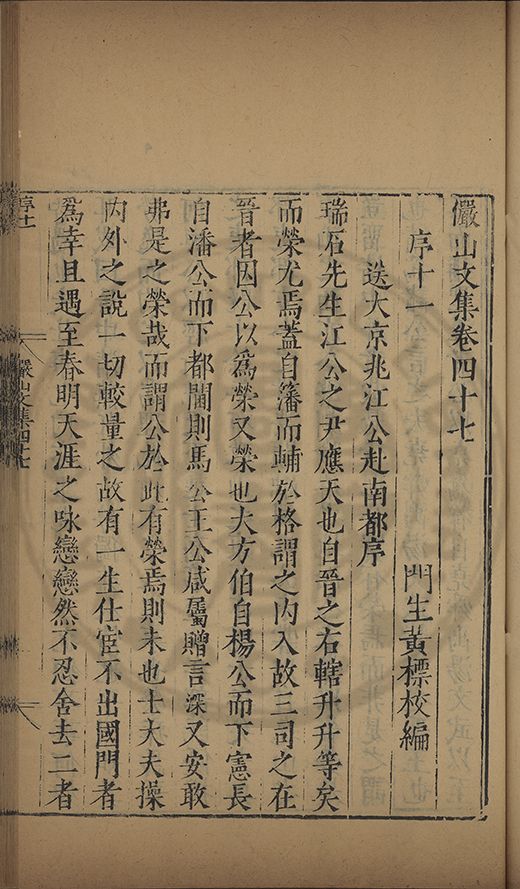 儼山文集卷四十七
序十一　門生黃標校編
送大京兆江公赴南都序
瑞石先生江公之尹應天也自晉之右轄升升等矣
而榮尤焉蓋自籓而輔於格謂之内入故三司之在
晉者因公以爲榮又榮也大方伯自楊公而下憲長
自潘公而下都閫則馬公王公咸屬贈言深又安敢
弗是之榮哉而謂公於此有榮焉則未也士大夫操
内外之說一切較量之故有一生仕宦不出國門者
爲幸且遇至春明天涯之咏戀戀然不忍舍去二者
儼山文集四七
序十一